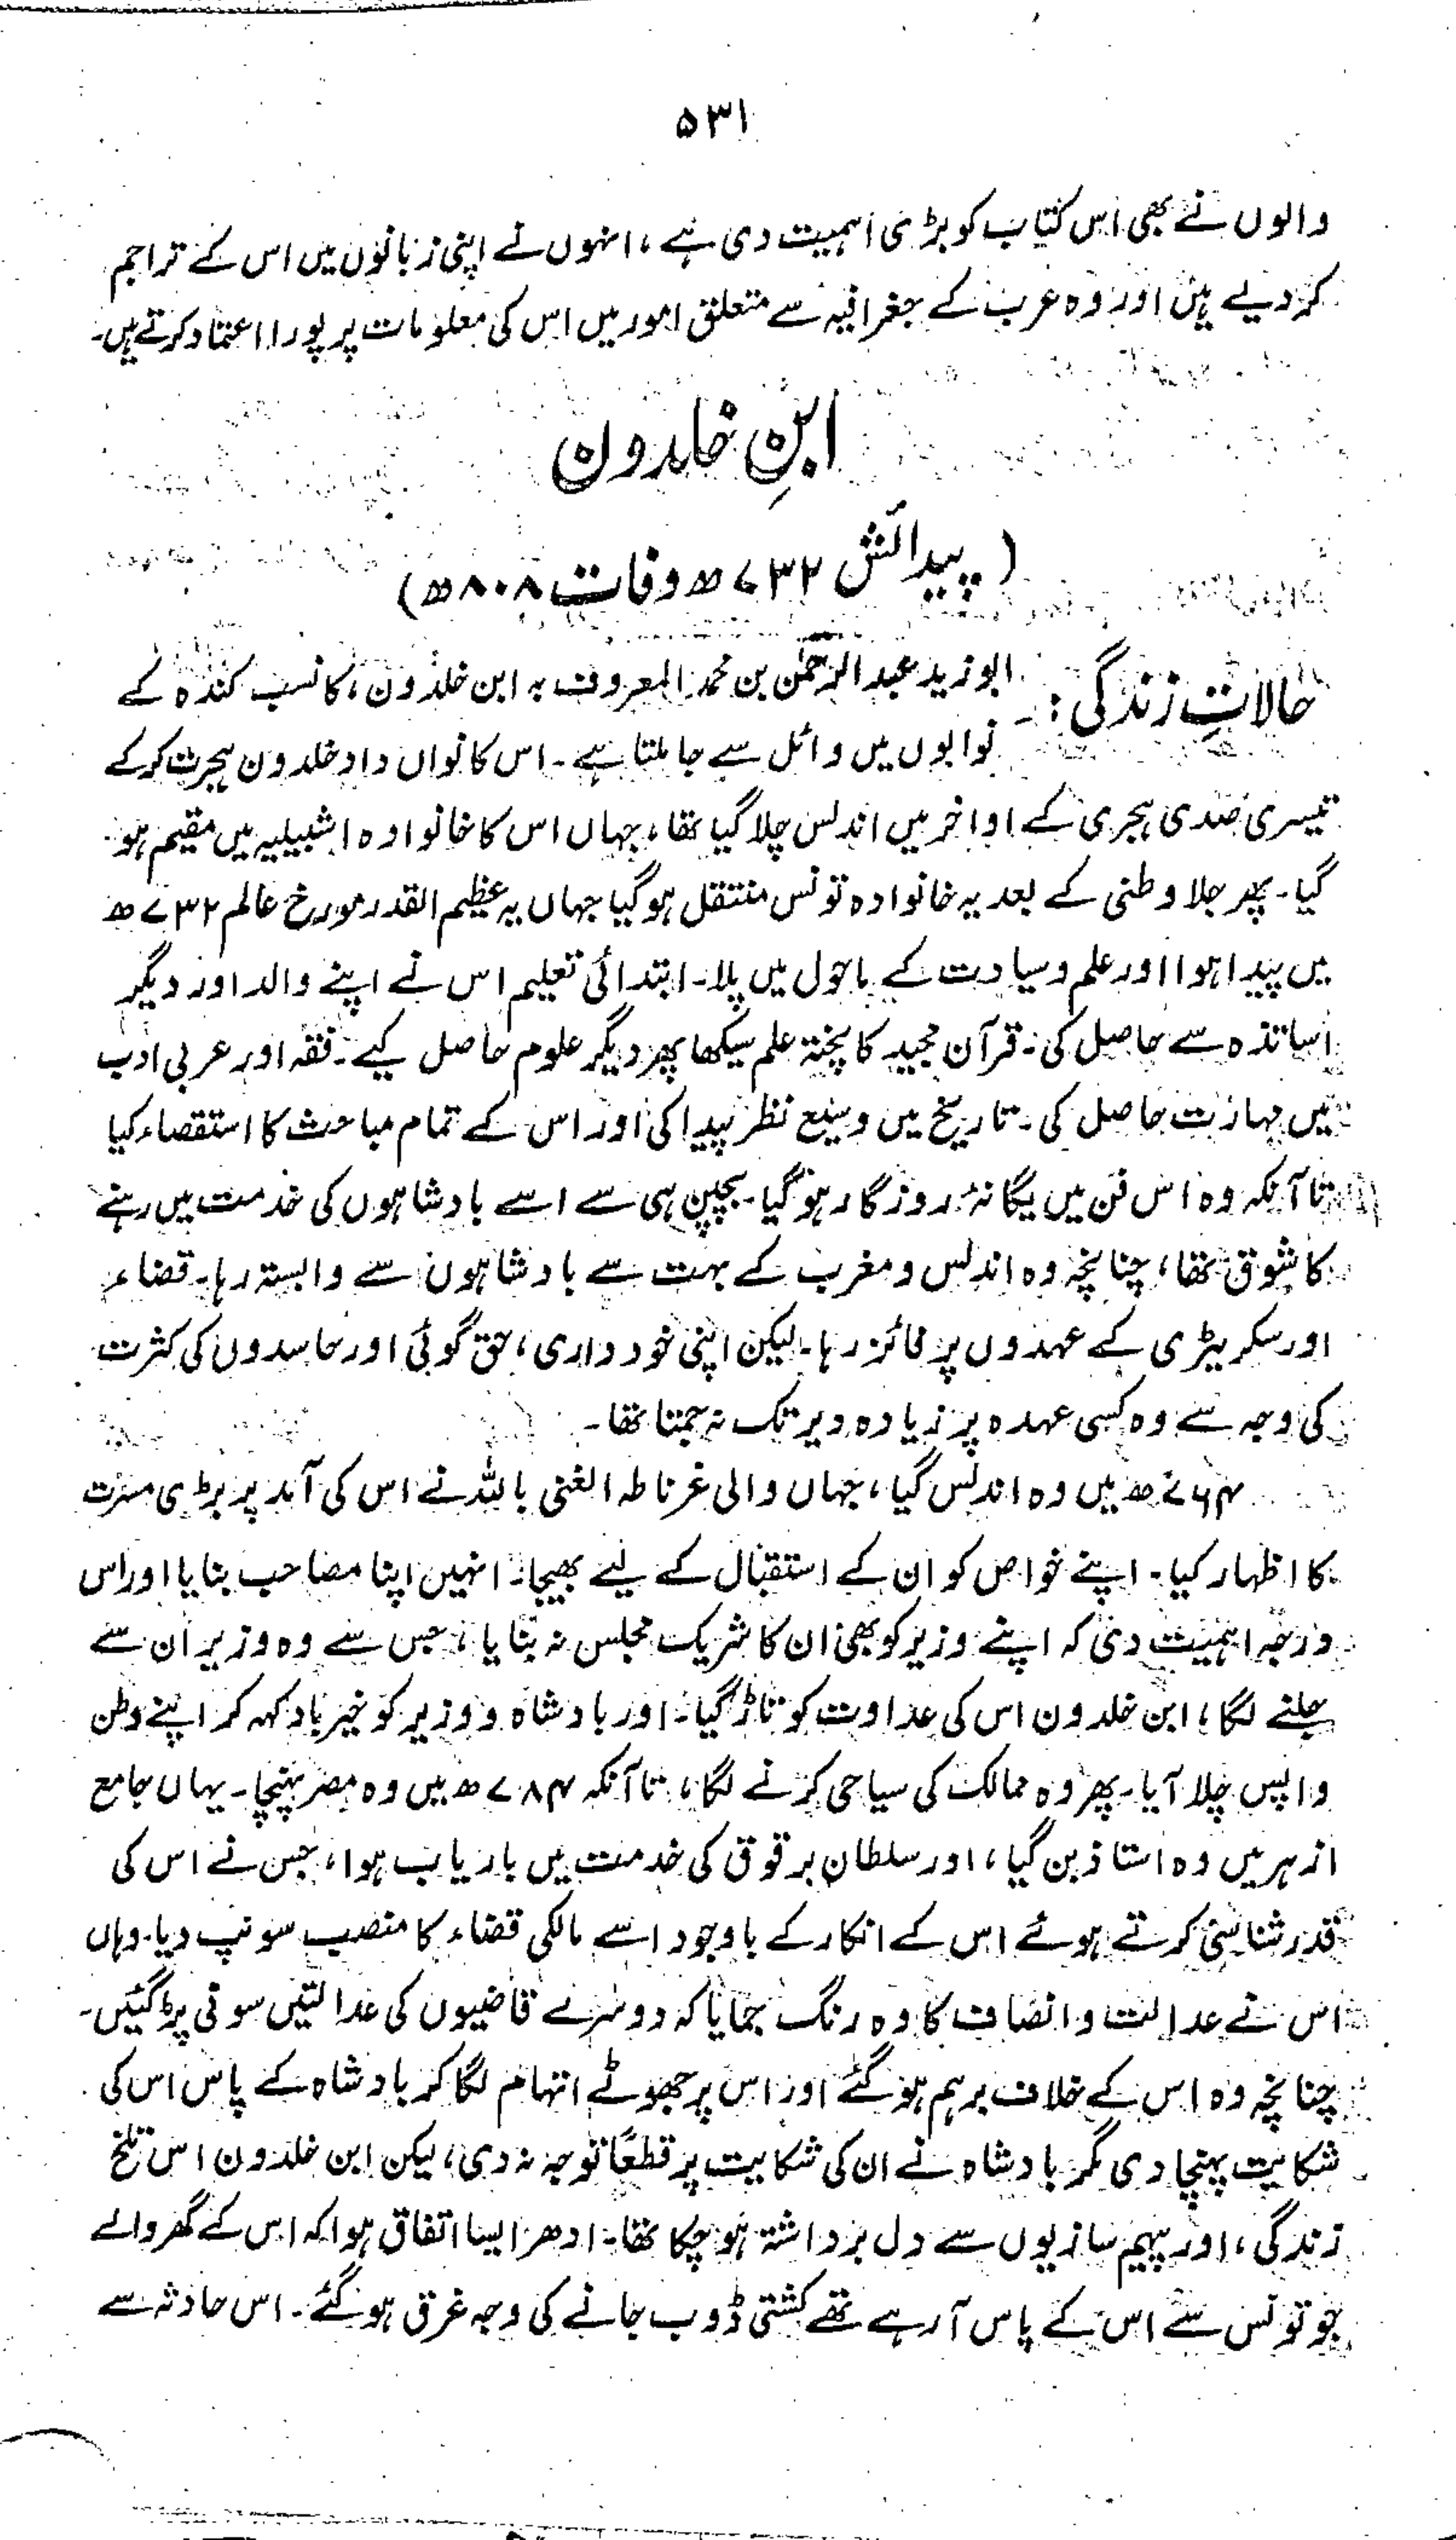 ۵۳۱
والوں نے بھی اس کتاب کو بڑی اہمیت دی ہے، انہوں نے اپنی زبانوں میں اس کے تراجم
کر دیے ہیں اور وہ عرب کے جغرافیہ سے متعلق امور میں اس کی معلومات پر پورا اعتماد کرتے ہیں۔
ابنِ خلدون
(پیدائش ۷۳۲ھ وفات ۸۰۸ھ)
حالاتِ زندگی:۔ ابو زید عبد الرحمٰن بن محمد المعروف بہ ابن خلدون، کا نسب کندہ کے
نوابوں میں وائل سے جا ملتا ہے۔ اس کا نواں دادا خلدون ہجرت کر کے
تیسری صدی ہجری کے اواخر میں اندلس چلا گیا تھا، جہاں اس کا خانوادہ اشبیلیہ میں مقیم ہو
گیا۔ پھر جلا وطنی کے بعد یہ خانوادہ تونس منتقل ہو گیا جہاں یہ عظیم القدر مورخ عالم ۷۳۲ھ
میں پیدا ہوا اور علم و سیادت کے ماحول میں پلا۔ ابتدائی تعلیم اس نے اپنے والد اور دیگر
اساتذہ سے حاصل کی۔ قرآن مجید کا پختہ علم سیکھا پھر دیگر علوم حاصل کیے۔ فقہ اور عربی ادب
میں مہارت حاصل کی۔ تاریخ میں وسیع نظر پیدا کی اور اس کے تمام مباحث کا استقصاء کیا
تا آنکہ وہ اس فن میں یگانۂ روزگار ہو گیا۔ بچپن ہی سے اسے بادشاہوں کی خدمت میں رہنے
کا شوق تھا، چنانچہ وہ اندلس و مغرب کے بہت سے بادشاہوں سے وابستہ رہا۔ قضاء
اور سکریٹری کے عہدوں پر فائز رہا۔ لیکن اپنی خود داری، حق گوئی اور حاسدوں کی کثرت
کی وجہ سے وہ کسی عہدہ پر زیادہ دیر تک نہ جمتا تھا۔
۷۶۴ھ میں وہ اندلس گیا، جہاں والی غرناطہ الغنی باللہ نے اس کی آمد پر بڑی مسرت
کا اظہار کیا۔ اپنے خواص کو ان کے استقبال کے لیے بھیجا۔ انہیں اپنا مصاحب بنایا اور اس
درجہ اہمیت دی کہ اپنے وزیر کو بھی ان کا شریک مجلس نہ بنایا، جس سے وہ وزیر ان سے
جلنے لگا، ابن خلدون اس کی عداوت کو تاڑ گیا۔ اور بادشاہ و وزیر کو خیر باد کہہ کر اپنے وطن
واپس چلا آیا۔ پھر وہ ممالک کی سیاحی کرنے لگا، تا آنکہ ۷۸۴ھ میں وہ مصر پہنچا۔ یہاں جامع
ازہر میں وہ استاذ بن گیا، اور سلطان برقوق کی خدمت میں باریاب ہوا، جس نے اس کی
قدر شناسی کرتے ہوئے اس کے انکار کے باوجود اسے مالکی قضاء کا منصب سونپ دیا۔ وہاں
اس نے عدالت و انصاف کا وہ رنگ جمایا کہ دوسرے قاضیوں کی عدالتیں سونی پڑ گئیں۔
چنانچہ وہ اس کے خلاف برہم ہو گئے اور اس پر جھوٹے اتہام لگا کر بادشاہ کے پاس اس کی
شکایت پہنچا دی مگر بادشاہ نے ان کی شکایت پر قطعًا توجہ نہ دی، لیکن ابن خلدون اس تلخ
زندگی، اور پیہم سازیوں سے دل برداشتہ ہو چکا تھا۔ ادھر ایسا اتفاق ہوا کہ اس کے گھر والے
جو تونس سے اس کے پاس آ رہے تھے کشتی ڈوب جانے کی وجہ غرق ہو گئے۔ اس حادثہ سے